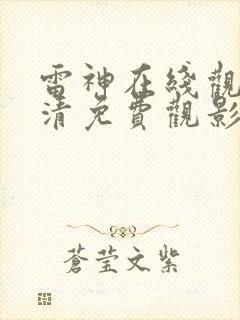 雷神在綫觀
清免費觀影
蒼莹文紫